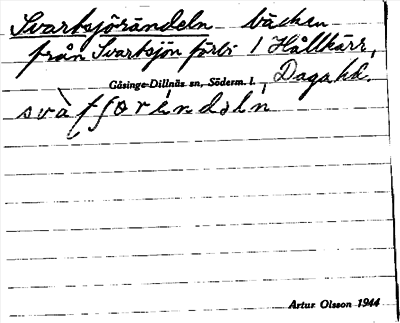 Svartsjörändeln bäcken
från Svartsjön förbi 1 Hållkärr,
Gåsinge-Dillnäs sn, Söderm. l., Daga hd.
Artur Olsson 1944